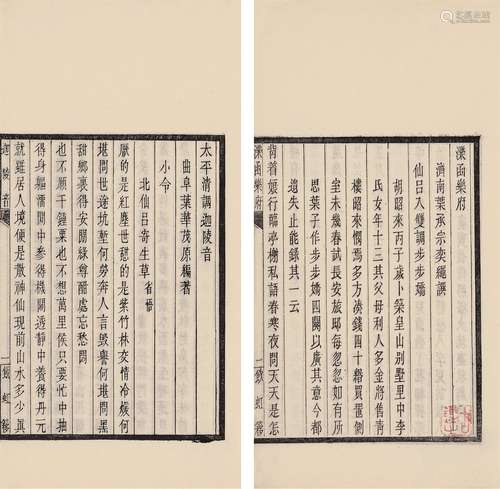 濼函樂府
濟南葉承宗奕繩譔
仙呂入雙調步步嬌
胡昭來丙子歲卜築皇山別墅里中李
氏女年十三其父母利人多金將售青
樓昭來憫焉多方湊錢四十緡買置側
室未幾春試長安旅邸每忽忽如有所
思葉子作步步嬌四闋以廣其意今都
遺失止能錄其一云
背着娘行臨亭榭私語春寒夜問天天是你
濼函樂府
二飲虹簃
太平清調迦陵音
曲阜葉華茂原槀著
小令
北仙呂寄生草 省悟
厭的是紅塵世戀的是紫竹林交情冷煖何
堪問世途坑塹何勞奔人言毀譽何堪問黑
甜鄉裏得安閒綠尊醅處忘愁悶
也不願千鍾粟也不想萬里侯只要忙中抽
得身軀濳閙中參得機關透靜中養得丹元
就雖居人境便是散神仙現前山水多少真
迦陵音
一飲虹簃